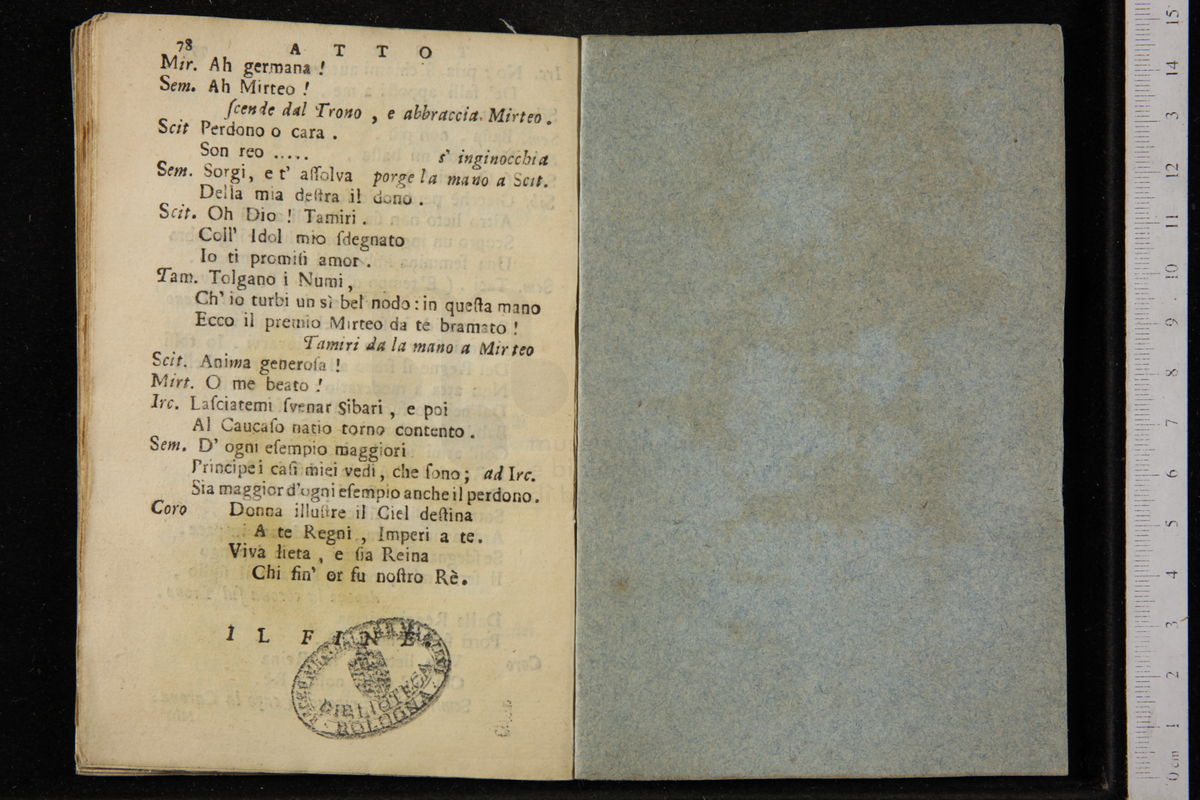 78 A T T O
Mir. Ah germana !
Sem. Ah Mirteo !
ſcende dal Trono , e abbraccia Mirteo .
Scit Perdono o cara .
Son reo ..... s' inginocchia
Sem. Sorgi, e t' aſſolva porge la mano a Scit.
Della mia deſtra il dono .
Scit. Oh Dio ! Tamiri .
Coll' Idol mio ſdegnato
Io ti promiſi amor .
Tam. Tolgano i Numi,
Ch' io turbi un sì bel nodo : in queſta mano
Ecco il premio Mirteo da te bramato !
Tamiri da la mano a Mirteo
Scit. Anima generoſa !
Mirt. O me beato !
Irc. Laſciatemi ſvenar Sibari , e poi
Al Caucaſo natio torno contento .
Sem. D' ogni eſempio maggiori
Principe i caſi miei vedi, che ſono; ad Irc.
Sia maggior d'ogni eſempio anche il perdono.
Coro Donna illuſtre il Ciel deſtina
A te Regni , Imperi a te.
Viva lieta , e ſia Reina
Chi fin' or fu noſtro Rè.
I L F I N E
BIBLIOTECA
BOLOGNA
0 cm 1 2 3 4 5 6 7 8 9 10 11 12 13 14 15